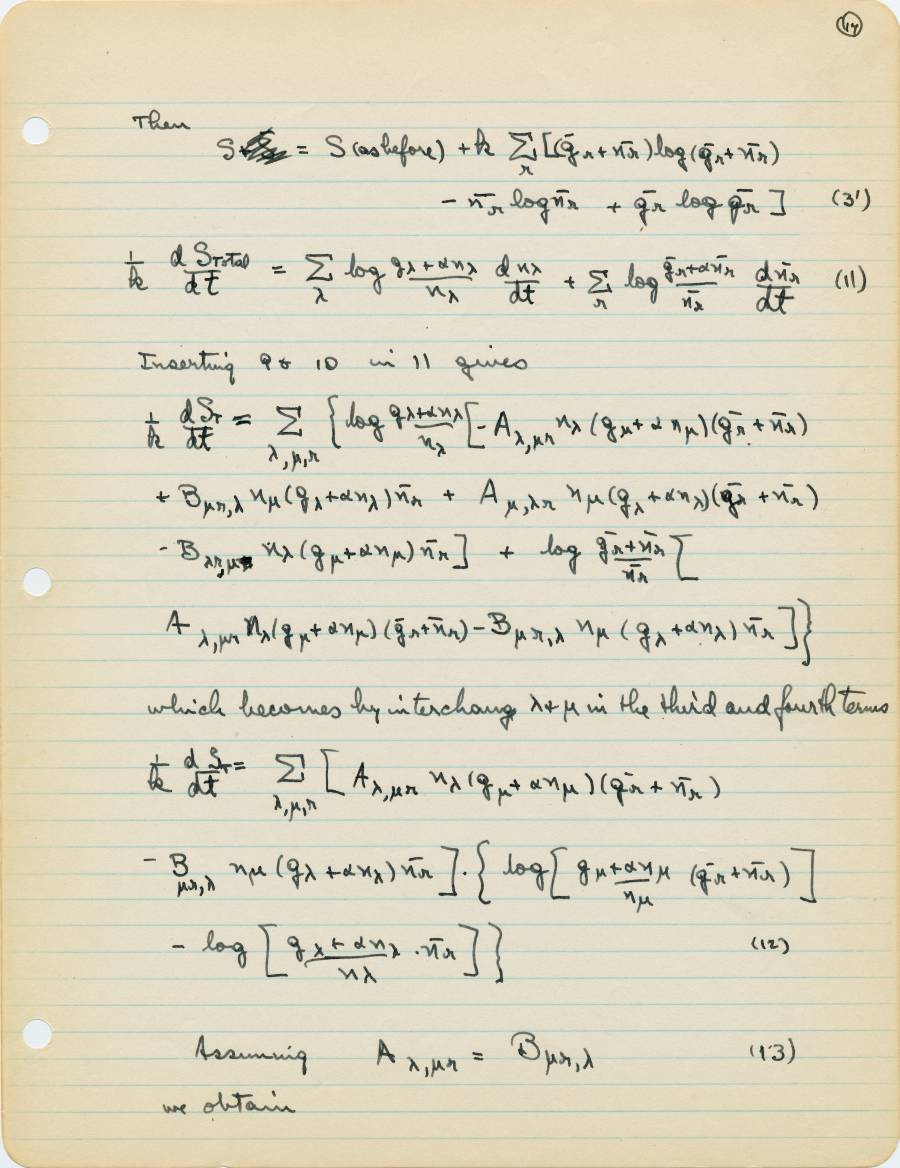 14
Then
S = S (as before) + k Σ_r [(ḡ_r + n̄_r) log (ḡ_r + n̄_r)
− n̄_r log n̄_r + ḡ_r log ḡ_r ] (3')
1/k dS_Total/dt = Σ_λ log (g_λ + αn_λ)/n_λ dn_λ/dt + Σ_r log (ḡ_r + αn̄_r)/n̄_r dn̄_r/dt (11)
Inserting 9 & 10 in 11 gives
1/k dS_T/dt = Σ_λ,μ,r { log (g_λ + αn_λ)/n_λ [ − A_λ,μr n_λ (g_μ + αn_μ)(ḡ_r + n̄_r)
+ B_μr,λ n_μ (g_λ + αn_λ) n̄_r + A_μ,λr n_μ (g_λ + αn_λ)(ḡ_r + n̄_r)
− B_λr,μ n_λ (g_μ + αn_μ) n̄_r ] + log (ḡ_r + n̄_r)/n̄_r [
A_λ,μr n_λ (g_μ + αn_μ)(ḡ_r + n̄_r) − B_μr,λ n_μ (g_λ + αn_λ) n̄_r ] }
which becomes by interchang λ + μ in the third and fourth terms
1/k dS_T/dt = Σ_λ,μ,r [ A_λ,μr n_λ (g_μ + αn_μ)(ḡ_r + n̄_r)
− B_μr,λ n_μ (g_λ + αn_λ) n̄_r ] · { log [ (g_μ + αn_μ)/n_μ (ḡ_r + n̄_r) ]
− log [ (g_λ + αn_λ)/n_λ · n̄_r ] } (12)
Assuming A_λ,μr = B_μr,λ (13)
we obtain